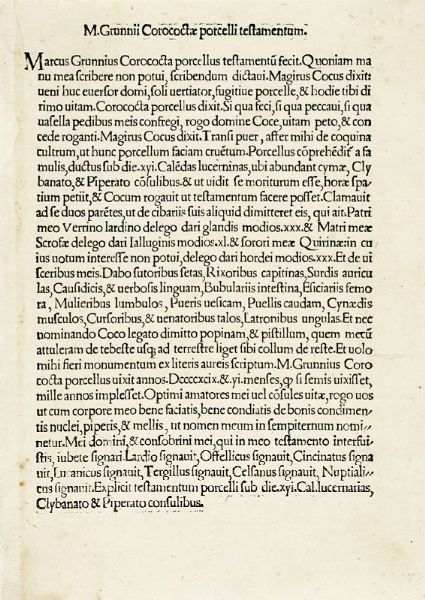 M.Grunnii Corococtæ porcelli testamentum.
Marcus Grunnius Corococta porcellus testamentū fecit.Quoniam ma
nu mea scribere non potui, scribendum dictaui.Magirus Cocus dixit:
ueni huc euersor domi, soli uertiator, fugitiue porcelle, & hodie tibi di
rimo uitam.Corococta porcellus dixit.Si qua feci, si qua peccaui, si qua
uasella pedibus meis confregi, rogo domine Coce, uitam peto, & con
cede roganti.Magirus Cocus dixit.Transi puer, affer mihi de coquina
cultrum, ut hunc porcellum faciam cruētum.Porcellus cōprehēdit᷑ a fa
mulis, ductus sub die.xyi.Calēdas lucerninas, ubi abundant cymæ, Cly
banato, & Piperato cōsulibus.& ut uidit se moriturum esse, horæ spa
tium petiit, & Cocum rogauit ut testamentum facere posset.Clamauit
ad se duos parētes, ut de cibariis suis aliquid dimitteret eis, qui ait.Patri
meo Verrino lardino delego dari glandis modios.xxx.& Matri meæ
Scrofæ delego dari Ialluginis modios.xl.& sorori meæ Quirinæ:in cu
ius uotum interesse non potui, delego dari hordei modios.xxx.Et de ui
sceribus meis.Dabo sutoribus setas, Rixoribus capitinas, Surdis auricu
las, Causidicis, & uerbosis linguam, Bubulariis intestina, Esiciariis femo
ra, Mulieribus lumbulos, Pueris uesicam, Puellis caudam, Cynædis
musculos, Cursoribus, & uenatoribus talos, Latronibus ungulas.Et nec
nominando Coco legato dimitto popinam, & pistillum, quem mecū
attuleram de tebeste usq; ad terrestre liget sibi collum de reste.Et uolo
mihi fieri monumentum ex literis aureis scriptum.M.Grunnius Coro
cocta porcellus uixit annos.Dccccxcix.& yi.menses, ꝙ si semis uixisset,
mille annos implesset.Optimi amatores mei uel cōsules uitæ, rogo uos
ut cum corpore meo bene faciatis, bene condiatis de bonis condimen
tis nuclei, piperis, & mellis, ut nomen meum in sempiternum nomi
netur.Mei domini, & consobrini mei, qui in meo testamento interfui
stis, iubete signari.Lardio signauit, Offellicus signauit, Cincinatus signa
uit, Lucanicus signauit, Tergillus signauit, Celsanus signauit, Nuptiali
cus signauit.Explicit testamentum porcelli sub die.xyi.Cal.lucernarias,
Clybanato & Piperato consulibus.